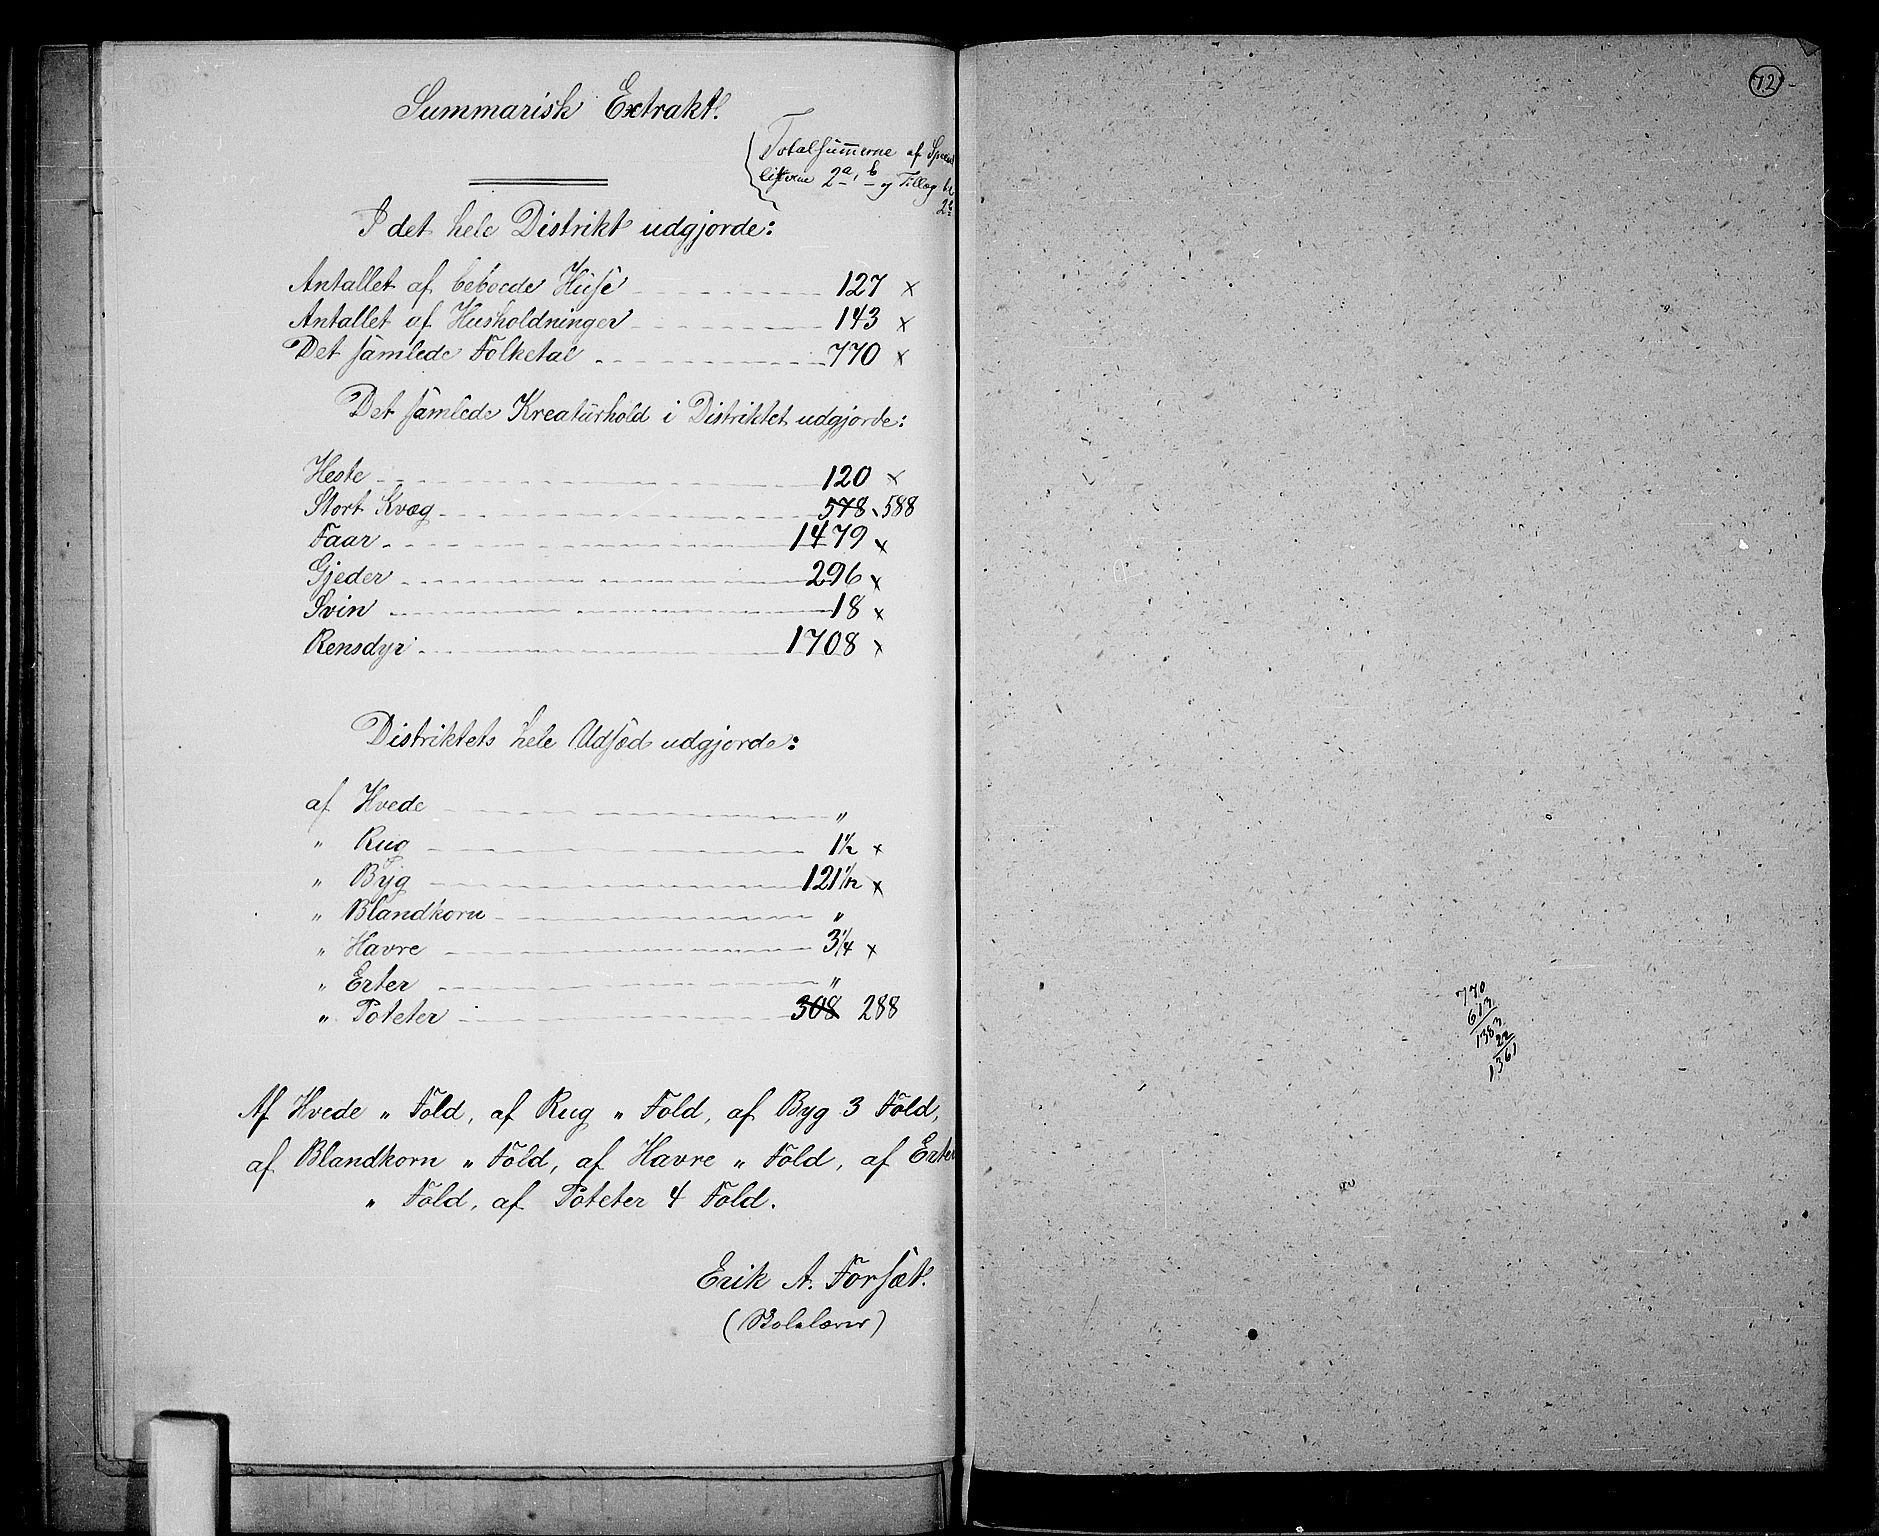 Summarisk Extrakt.
Totalsummerne af
listerne 2a, b og Tillæg
I det hele Distrikt udgjorde:
Antallet af beboede Huse 127 ×
Antallet af Husholdninger 143 ×
Det samlede Folketal 770 ×
Det samlede Kreaturhold i Distriktet udgjorde:
Heste 120 ×
Stort Kvæg 578 588
Faar 1479 ×
Gjeder 296 ×
Svin 18 ×
Rensdyr 1708 ×
Distriktets hele Udsæd udgjorde:
af Hvede "
" Rug 1 1/2 ×
" Byg 121 1/2 ×
" Blandkorn "
" Havre 3 1/4 ×
" Erter "
" Poteter 308 288
Af Hvede " Fold, af Rug " Fold, af Byg 3 Fold,
af Blandkorn " Fold, af Havre " Fold, af Erter
" Fold, af Poteter 4 Fold.
Erik A. Forsæt.
72
770
613
1383
22
1361